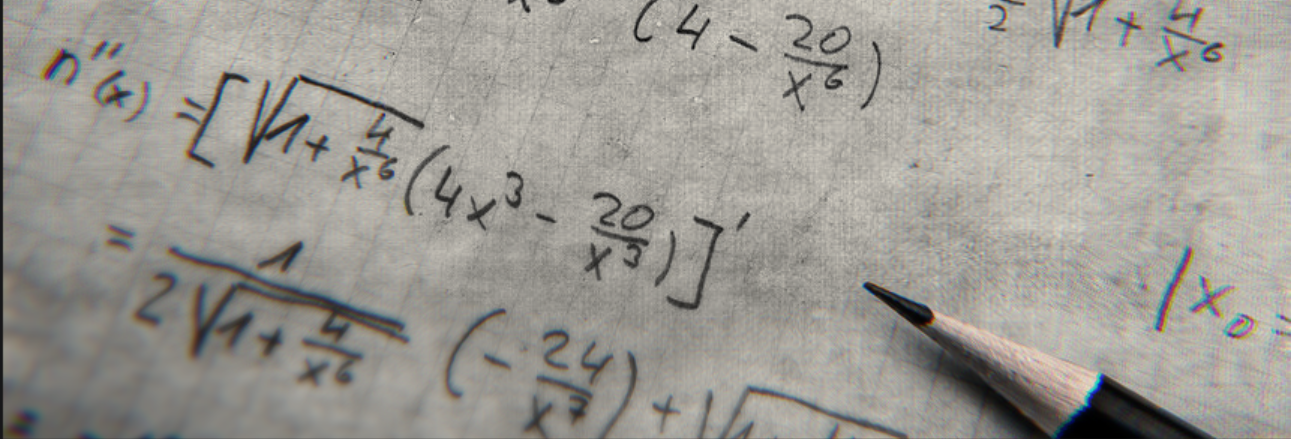 (4 - 20/x⁶)
2 √1 + 4/x⁶
n''(x) = [√1 + 4/x⁶ (4x³ - 20/x³)]'
= 1/2√1 + 4/x⁶ (- 24/x⁷) + √
/x₀ =